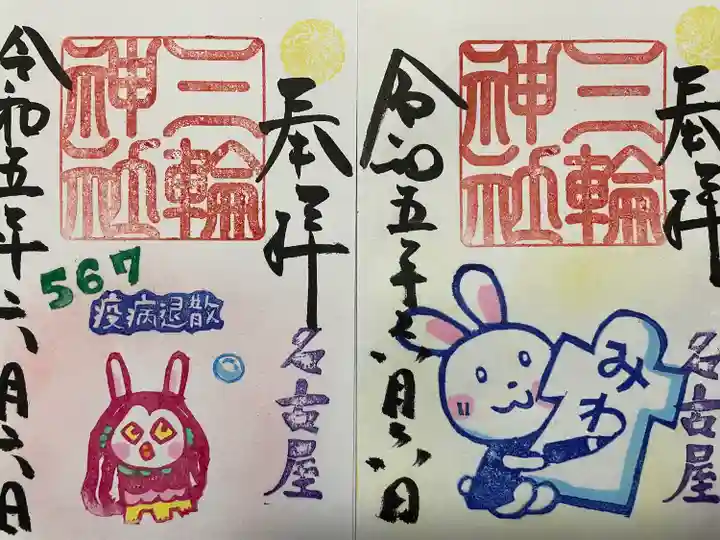 奉拝
三輪
神社
名古屋
令和五年六月六日
567
疫病退散
奉拝
三輪
神社
名古屋
令和五年六月六日
みわ